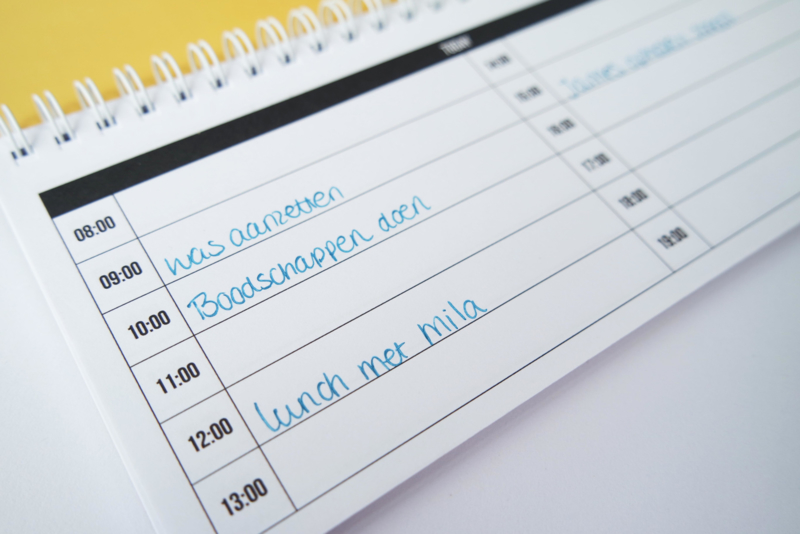 TODAY
08:00
09:00 was aanzetten
10:00 Boodschappen doen
11:00
12:00 lunch met mila
13:00
14:00
15:00
16:00
17:00
18:00
19:00